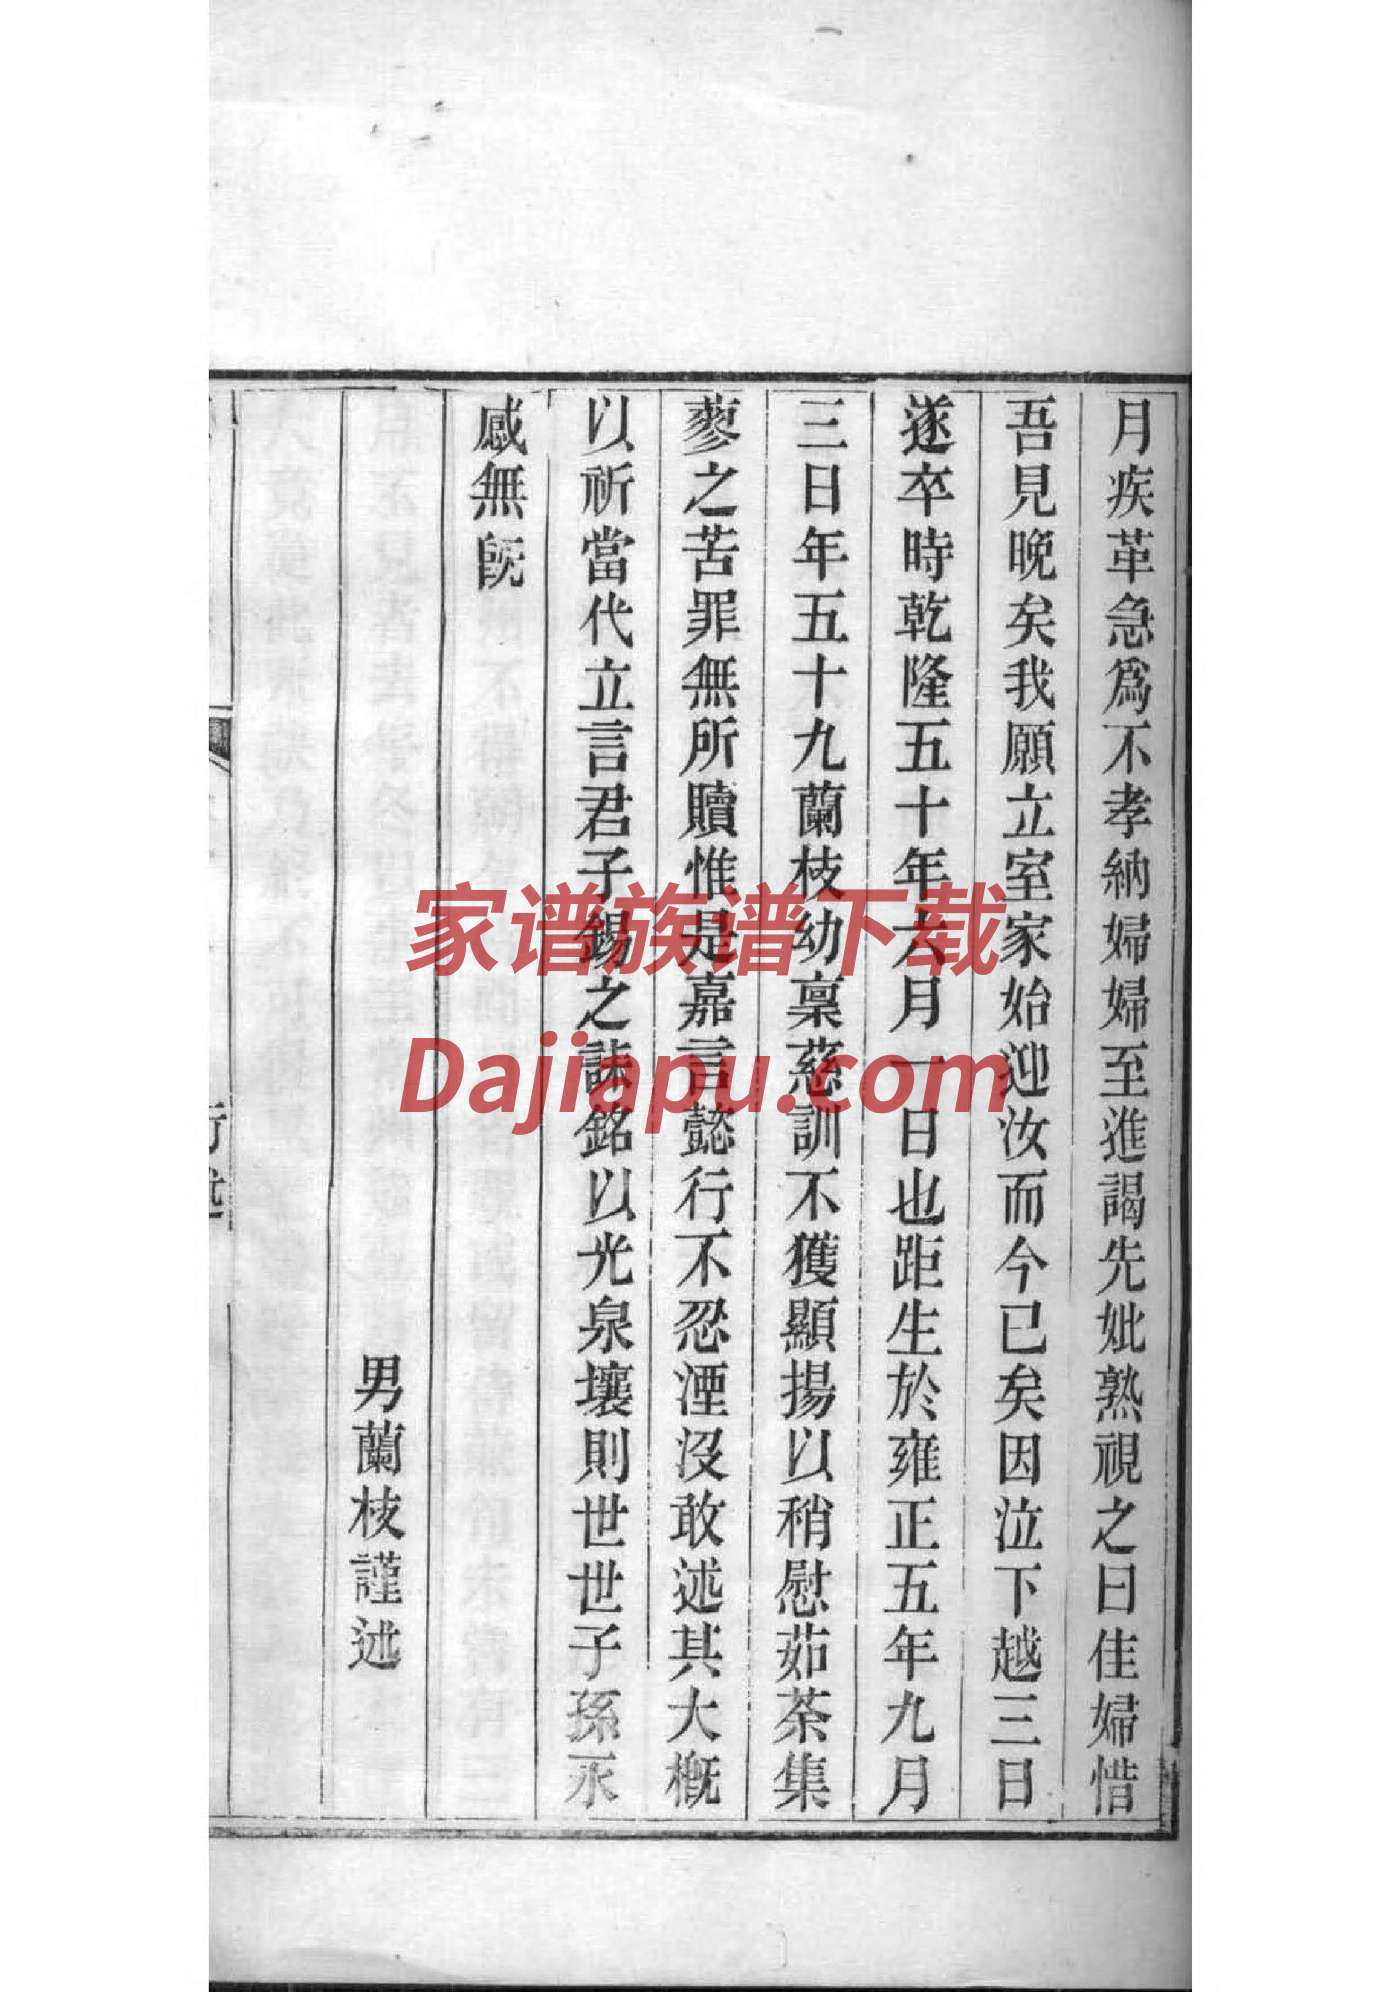 月疾革急爲不孝納婦婦至進謁先妣熟視之曰佳婦惜
吾見晚矣我願立室家始迎汝而今已矣因泣下越三日
遂卒時乾隆五十年六月一日也距生於雍正五年九月
三日年五十九蘭枝幼稟慈訓不獲顯揚以稍慰茹荼集
蓼之苦罪無所贖惟是嘉言懿行不忍湮沒敢述其大概
以祈當代立言君子錫之誄銘以光泉壤則世世子孫永
感無旣
男蘭枝謹述
行述
家谱族谱下载
Dajiapu.com